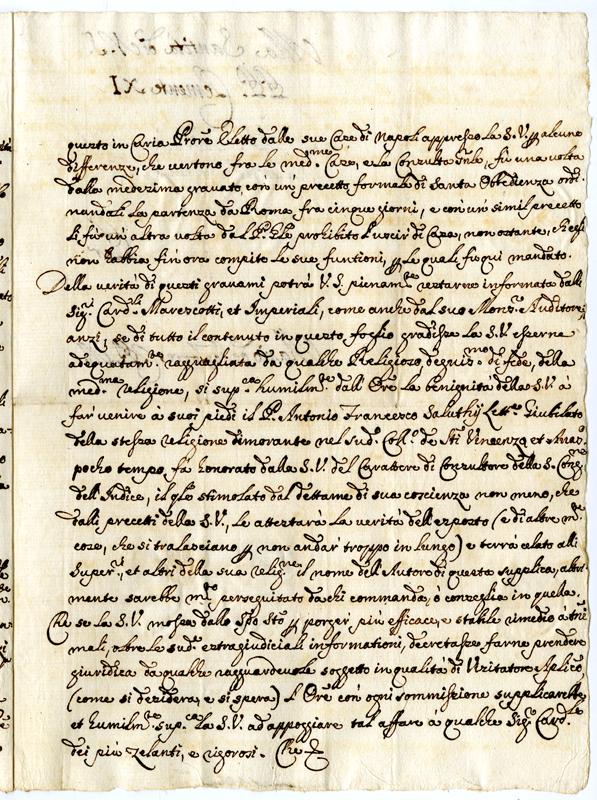 questo in Curia Prore Eletto dalle sue Case di Napoli appresso la S.V. p alcune
differenze, che vertono fra le med.me Case, e la Consulta Gnle, fù una volta
dalla medezima gravato, con un precetto formale di Santa Obedienza ordi-
nandoli la partenza da Roma fra cinque giorni, e con un simil precetto
li fù un'altra volta dal P. Gle prohibito l'uscir di Casa, non ostante, ch'egli
non habbia fin'ora compito le sue funtioni, p le quali fù qui mandato.
Della verità di questi gravami potrà V.S. pienam.te restarne informata dalli
Sig.ri Card.li Marescotti, et Imperiali, come anche dal suo Mons.r Auditore,
anzi, se di tutto il contenuto in questo foglio gradisse la S.V. esserne
adequatam.te ragguagliata da qualche Religioso degnis.mo di fede, della
med.ma religione, si sup.ca humilm.te dall'Ore la benignità della S.V. à
far venire à suoi piedi il P. Antonio Francesco Saluthij Lett.re Giubilato
della stessa religione dimorante nel sud. Coll.o de Sti Vincenzo, et Anas.
pocho tempo fà honorato dalla S.V. del Carattere di Consultore della S. Cong.
dell'Indice, il qle stimolato dal dettame di sua coscienza non meno, che
dalli precetti della S.V., le attestarà la verità dell'esposto (e di altre m.te
cose, che si tralasciano p non andar troppo in lungo) e terrà celato alli
Super.ri, et altri della sua relig.ne il nome dell'Autore di questa supplica, altri-
mente sarebbe m.to perseguitato da chi commanda, ò conseglia in quella.
Che se la S.V. mossa dallo Spo Sto p porger più efficace, e stabile rimedio à tni
mali, oltre le sud.e extragiudiciali informationi, decretasse farne prendere
giuridica da qualche ragguardevole soggetto in qualità di Visitatore Aplico
(come si desidera, e si spera) l'Ore con ogni sommissione supplicarebbe
et humilm.te sup.ca la S.V. ad appoggiare tal affare a qualche Sig.r Card.le
dei più zelanti, e rigorosi. Che